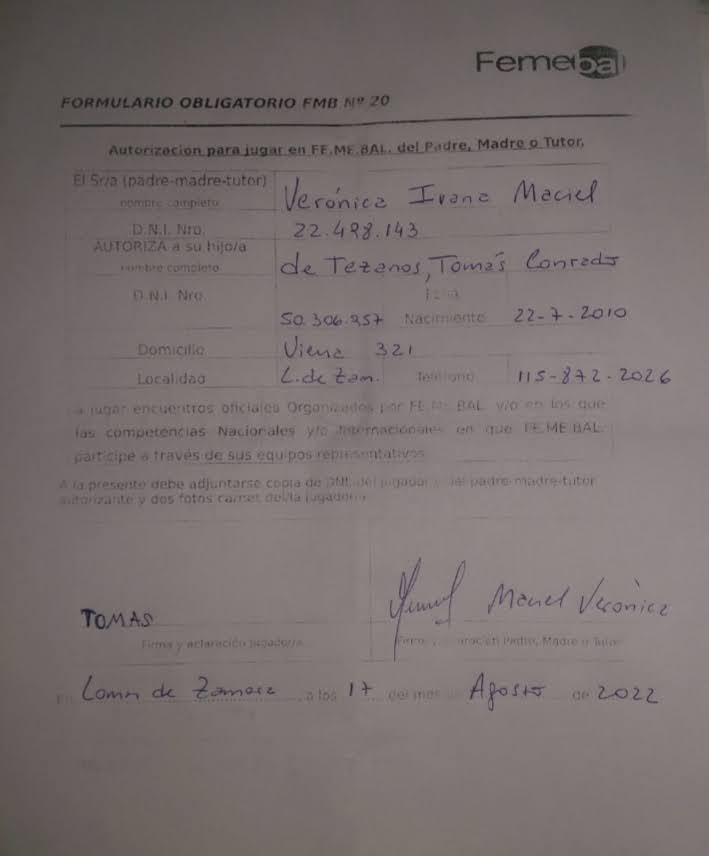 Femebal
FORMULARIO OBLIGATORIO FMB Nº 20
Autorizacion para jugar en FE.ME.BAL. del Padre, Madre o Tutor.
El Sr/a (padre-madre-tutor) nombre completo Verónica Ivana Maciel
D.N.I. Nro. 22.498.143
AUTORIZA a su hijo/a nombre completo de Tezanos, Tomás Conrado
D.N.I. Nro. 50.306.957 Nacimiento 22-7-2010
Domicilio Viena 321
Localidad L. de Zam. Teléfono 115-872-2026
a jugar encuentros oficiales Organizados por FE.ME.BAL. y/o en los que
las competencias Nacionales y/o Internacionales en que FE.ME.BAL.
participe a través de sus equipos representativos.
A la presente debe adjuntarse copia de DNI del jugador y del padre-madre-tutor
autorizante y dos fotos carnet del/la jugador/a
TOMAS Maciel Verónica
Firma y aclaración Jugador/a Padre, Madre o Tutor
En Lomas de Zamora a los 17 del mes de Agosto de 2022